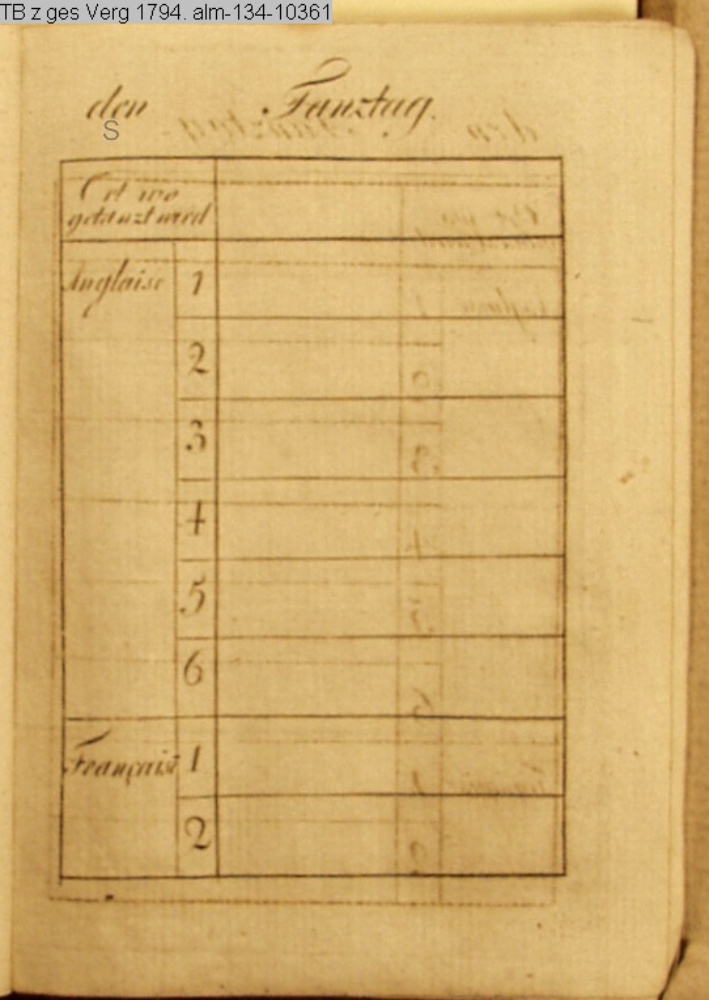 TB z ges Verg 1794. alm-134-10361
den Tanztag.
S
Ort wo
getanzt wird
Anglaise 1
2
3
4
5
6
Française 1
2